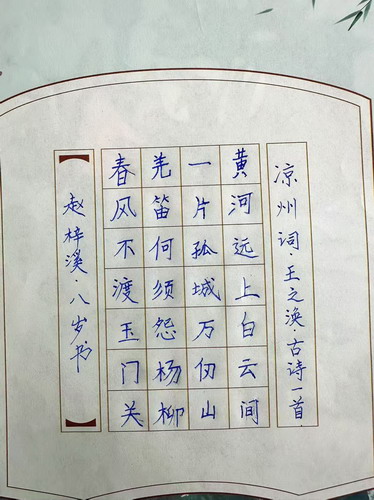 凉州词·王之涣·古诗一首·
黄河远上白云间
一片孤城万仞山
羌笛何须怨杨柳
春风不渡玉门关
赵梓溪·八岁书